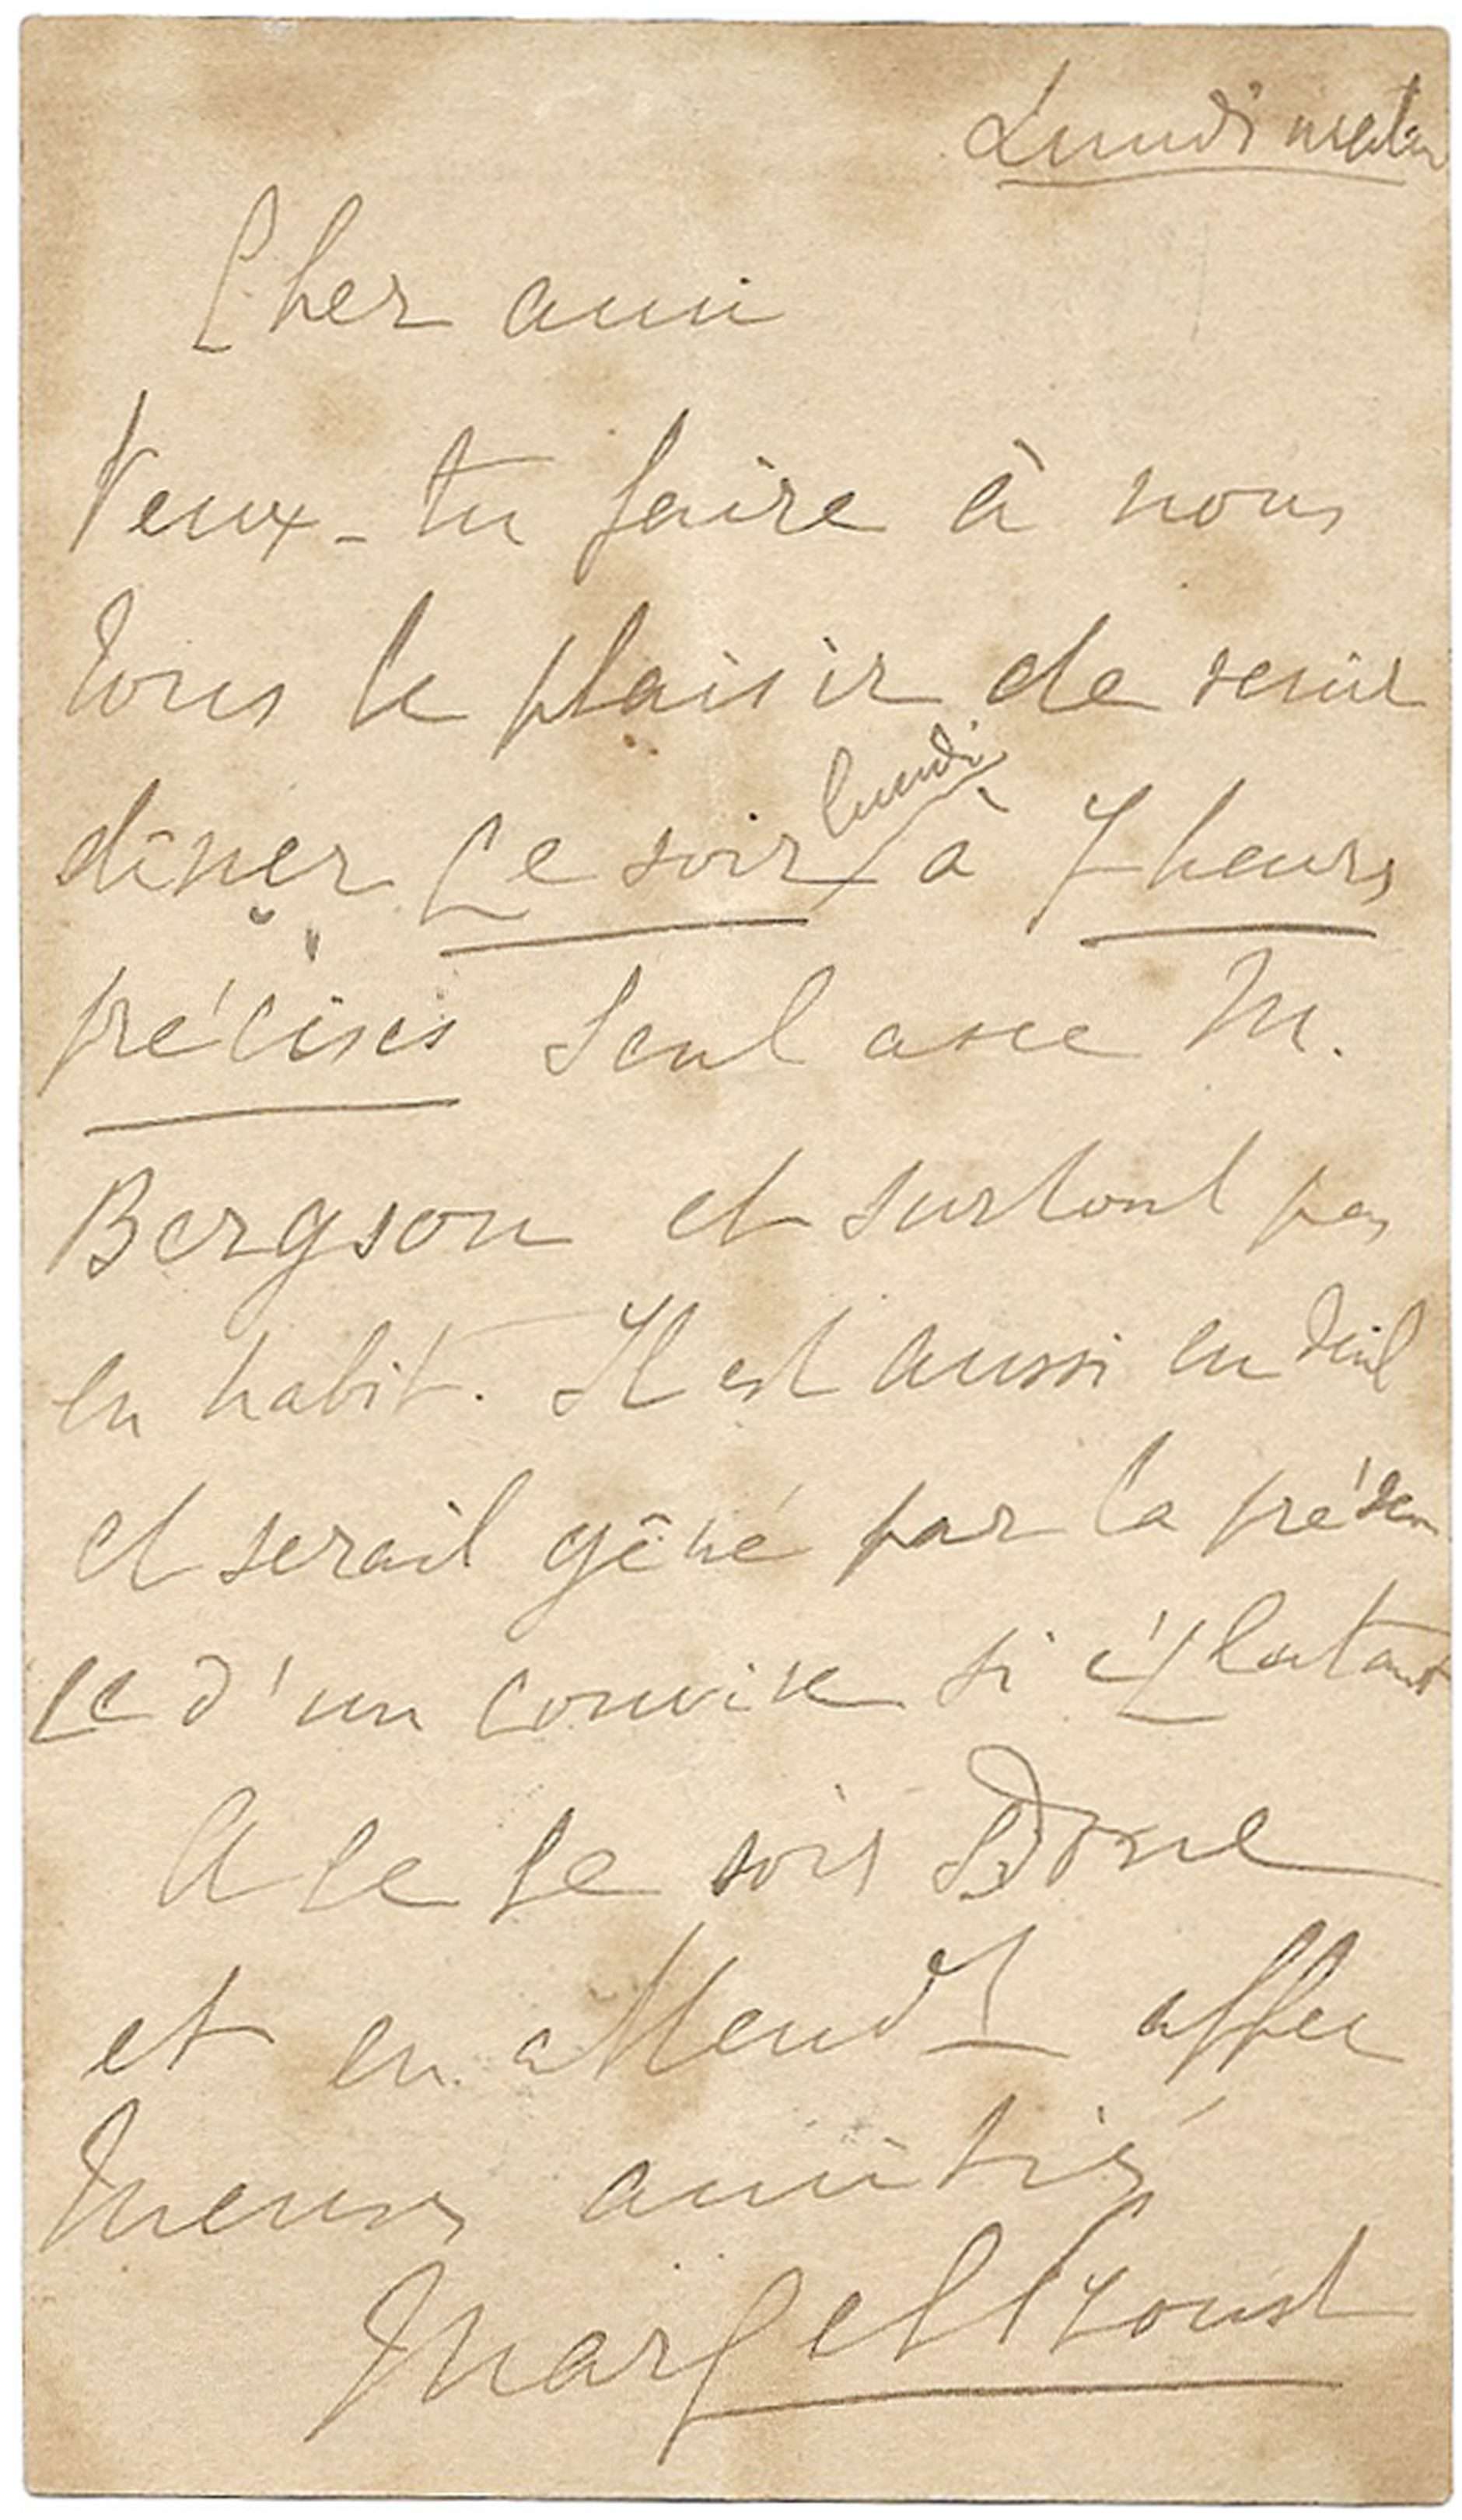 Lundi matin
Cher ami
Veux-tu faire à nous
tous le plaisir de venir
dîner ce soir lundi à 7 heures
précises seul avec M.
Bergson et surtout pas
en habit. Il est aussi en deuil
et serait gêné par la présen
ce d'un convive si éclatant
A ce ce soir donc
et en attendt affec
tueuses amitiés
Marcel Proust